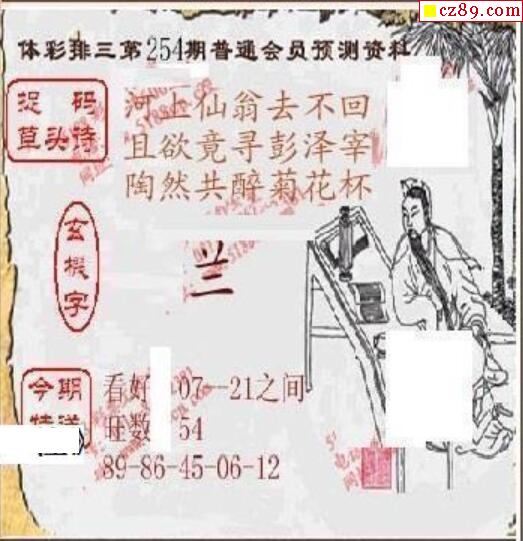 cz89.com
体彩排三第254期普通会员预测资料
捉码
草头诗
河上仙翁去不回
且欲竟寻彭泽宰
陶然共醉菊花杯
玄机字
兰
今期
特送
看好 07--21之间
旺数 54
89-86-45-06-12